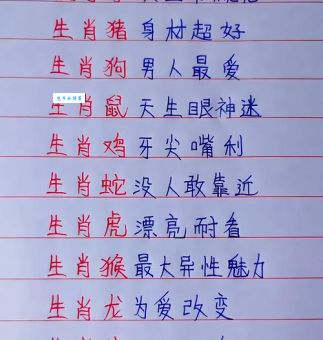 生肖猪身材超好
生肖狗男人最爱
生肖鼠天生眼神迷
生肖鸡牙尖嘴利
生肖蛇没人敢靠近
生肖虎漂亮耐看
生肖猴最大异性魅力
生肖龙为爱改变